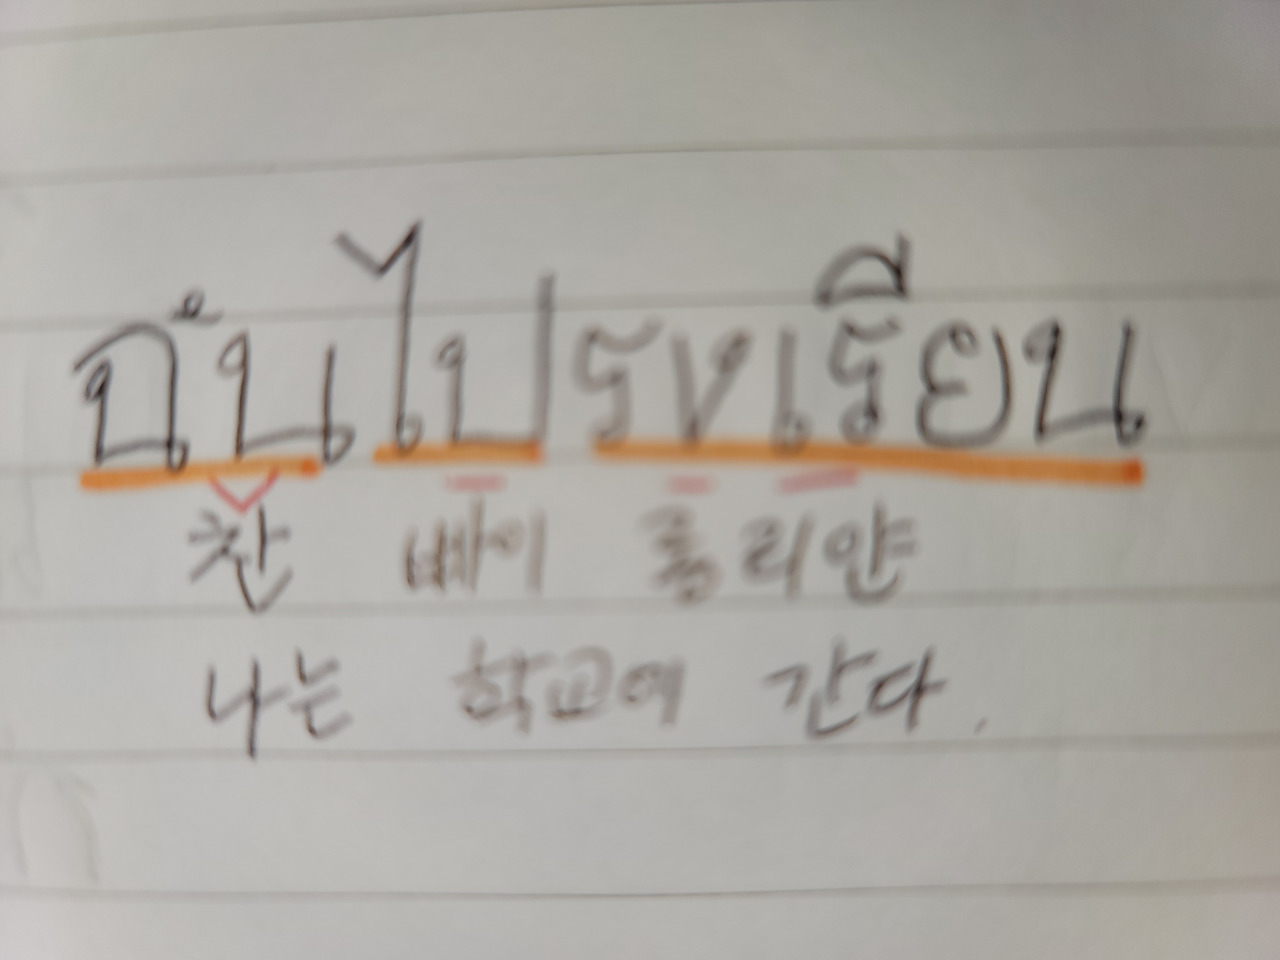 ฉันไปรงเรียน
찬 빠이 롱리얀
나는 학교에 간다.